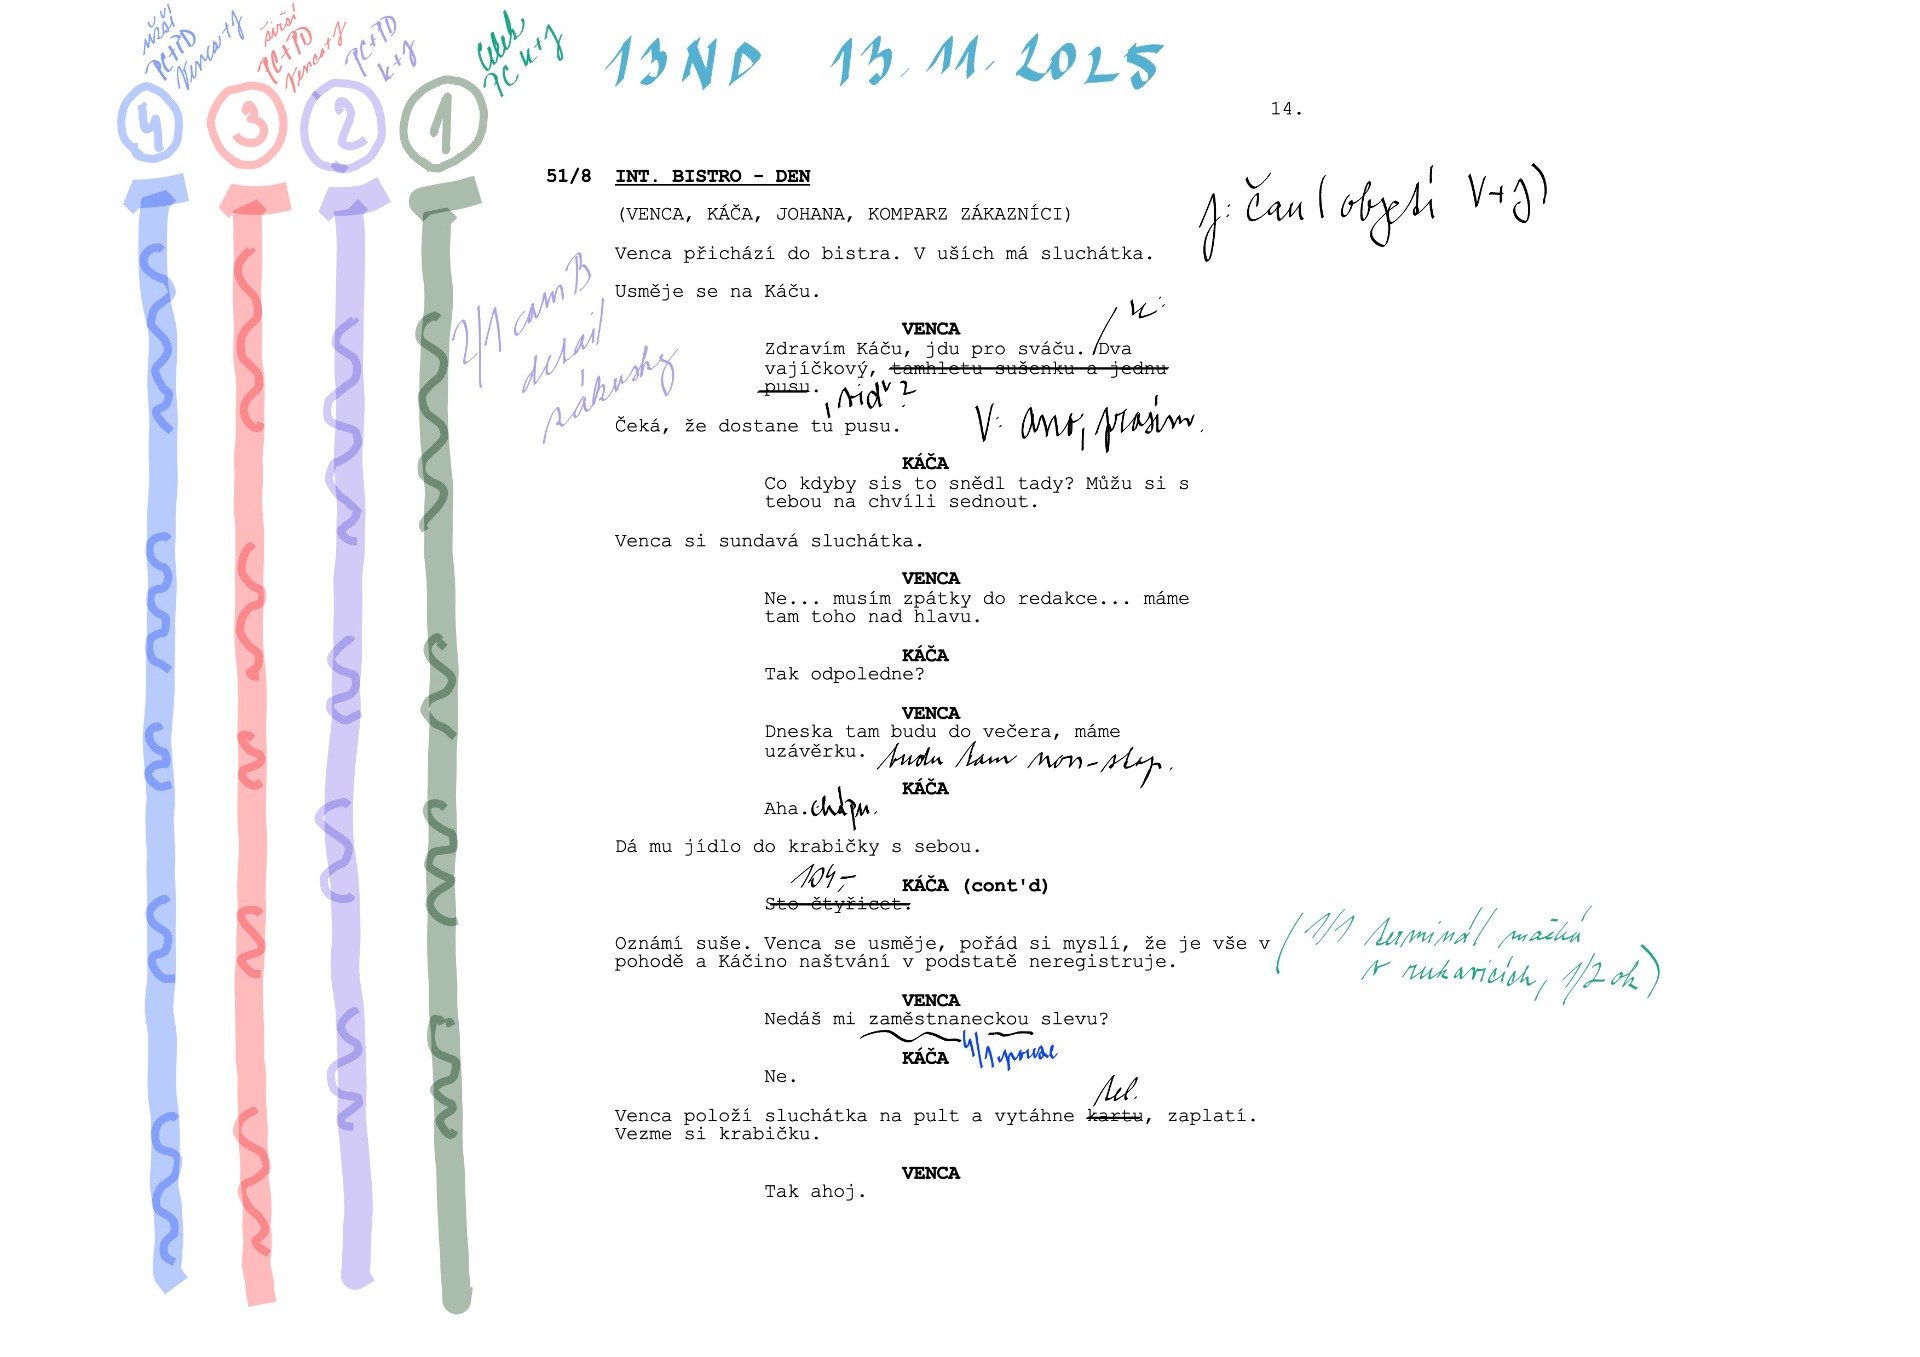 užší
PC+PD
Venca+J
širší
PC+PD
Venca+J
PC+PD
K+J
celek
PC K+J
13ND 13.11.2025
4 3 2 1
14.
51/8 INT. BISTRO - DEN
(VENCA, KÁČA, JOHANA, KOMPARZ ZÁKAZNÍCI)
J: čau (objetí V+J)
Venca přichází do bistra. V uších má sluchátka.
2/1 cam B
detail
zákusky
Usměje se na Káču.
K:
VENCA
Zdravím Káču, jdu pro sváču. Dva
vajíčkový, tamhletu sušenku a jednu
pusu.
, viď?
Čeká, že dostane tu pusu.
V: ano, prosím.
KÁČA
Co kdyby sis to snědl tady? Můžu si s
tebou na chvíli sednout.
Venca si sundavá sluchátka.
VENCA
Ne... musím zpátky do redakce... máme
tam toho nad hlavu.
KÁČA
Tak odpoledne?
VENCA
Dneska tam budu do večera, máme
uzávěrku. budu tam non-stop.
KÁČA
Aha. chápu.
Dá mu jídlo do krabičky s sebou.
104,-
KÁČA (cont'd)
Sto čtyřicet.
Oznámí suše. Venca se usměje, pořád si myslí, že je vše v
pohodě a Káčino naštvání v podstatě neregistruje.
(1/1 terminál mačká
v rukavicích, 1/2 ok)
VENCA
Nedáš mi zaměstnaneckou slevu?
KÁČA
4/1 pouze
Ne.
tel.
Venca položí sluchátka na pult a vytáhne kartu, zaplatí.
Vezme si krabičku.
VENCA
Tak ahoj.